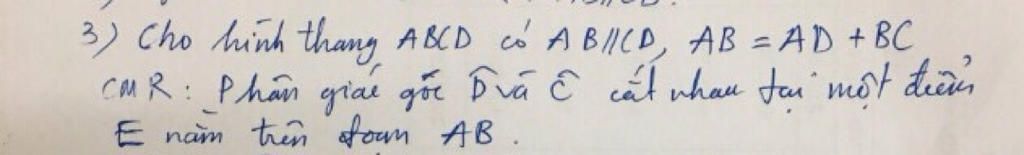 3) Cho hình thang ABCD có AB//CD, AB = AD + BC
CMR: Phân giác góc D̂ và Ĉ cắt nhau tại một điểm
E nằm trên đoạn AB.